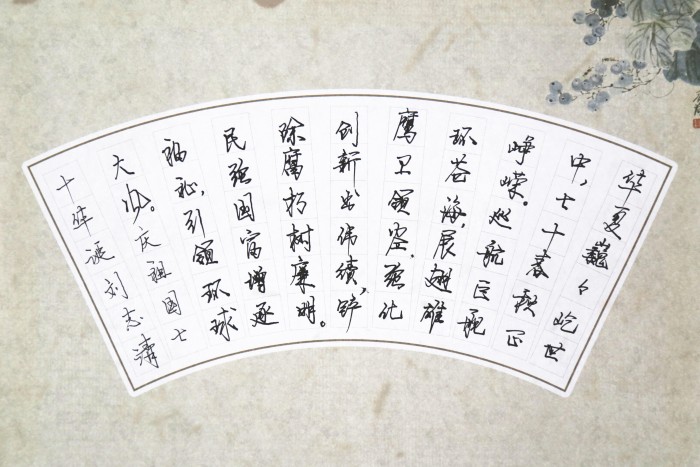 华夏巍々屹世
中,七十春秋正
峥嵘。巡航巨舰
环苍海,展翅雄
鹰卫领空。强化
创新出伟绩,铲
除腐朽树廉明。
民强国富增逐
福祉,引领环球
大。庆祖国七
十华诞 刘志清